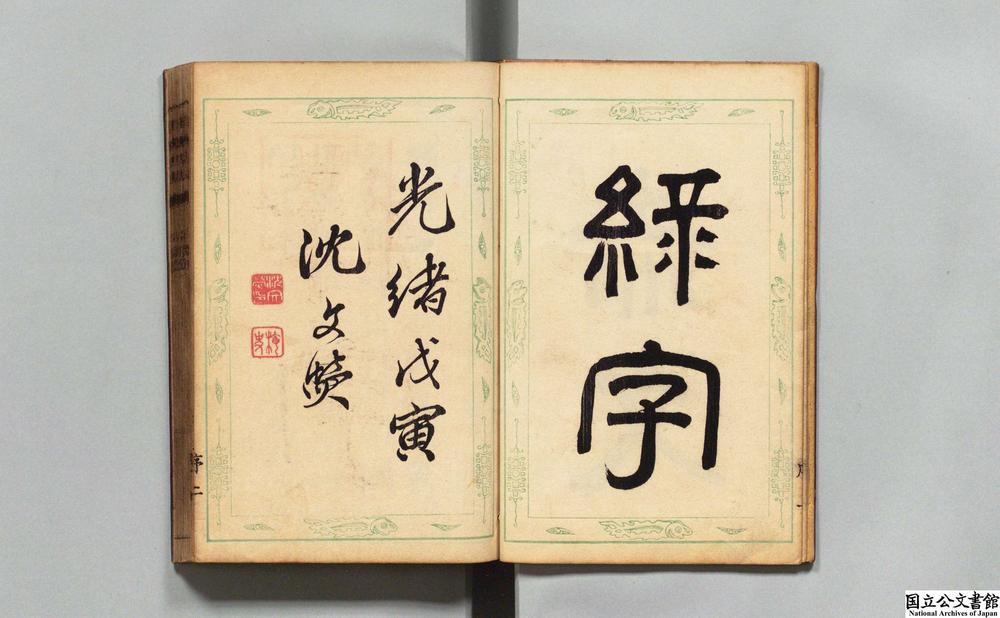 綠字
光緒戊寅
沈文熒
序 二
国立公文書館
National Archives of Japan